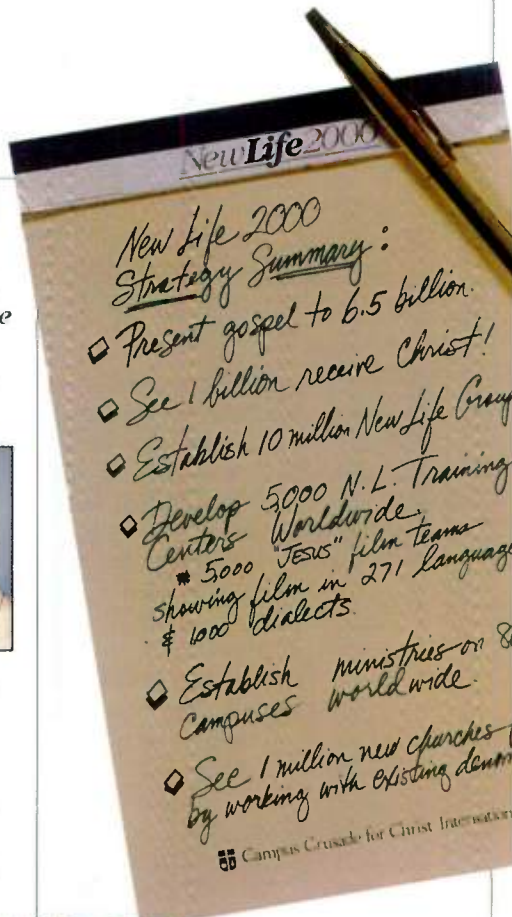 NewLife2000
New Life 2000
Strategy Summary:
Present gospel to 6.5 billion.
See 1 billion receive Christ!
Establish 10 million New Life Group
Develop 5,000 N.L. Training
Centers Worldwide.
* 5,000 "JESUS" film teams
showing film in 271 language
& 1000 dialects.
Establish ministries on 8
campuses worldwide.
See 1 million new churches
by working with existing denom
Campus Crusade for Christ Internation
e